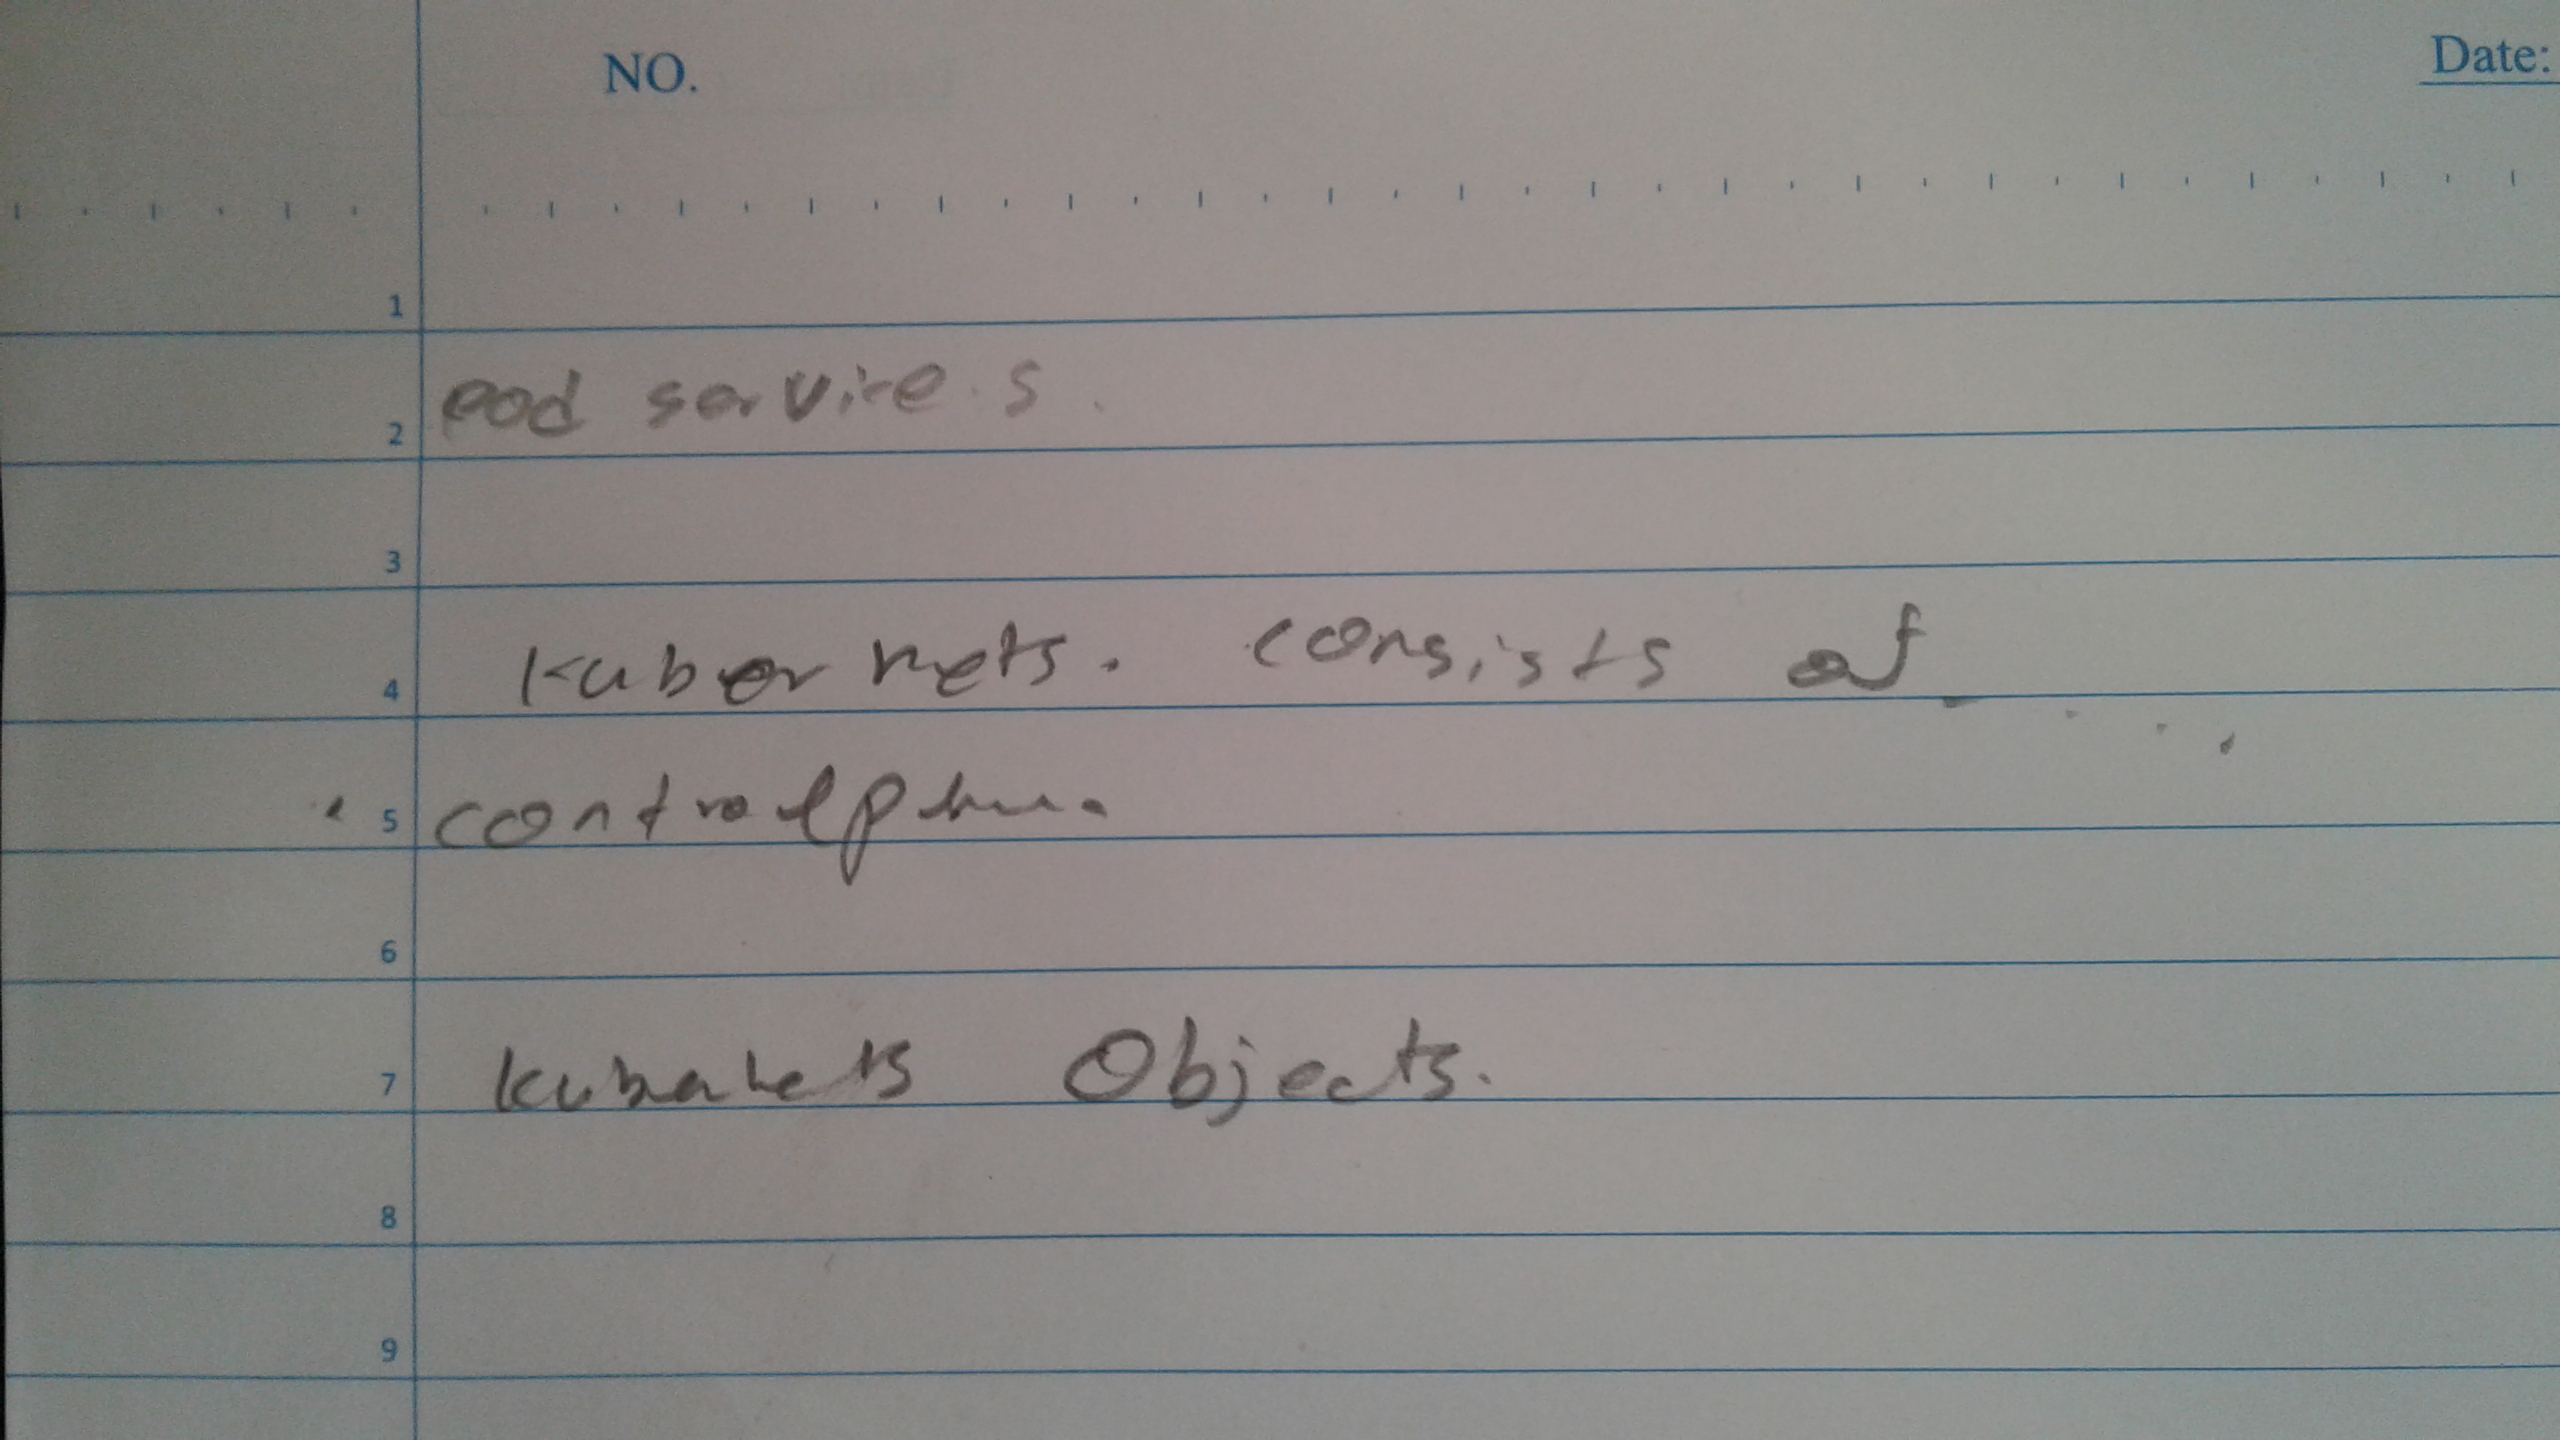 NO.
Date:
1
2 pod services.
3
4 Kubernets. consists of
5 control plane.
6
7 kubernets Objects.
8
9